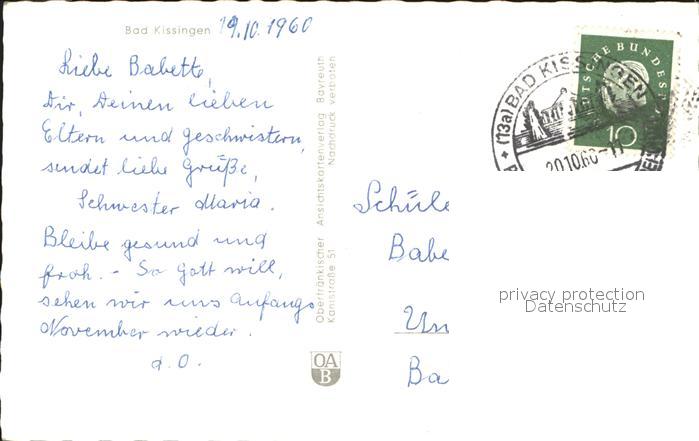 Bad Kissingen 19.10.1960
Liebe Babette,
Dir, Deinen lieben
Eltern und Geschwistern,
sendet liebe Grüße,
Schwester Maria.
Bleibe gesund und
froh. - So Gott will,
sehen wir uns Anfangs
November wieder.
d. O.
Oberfränkischer Ansichtskartenverlag Bayreuth
Kanistraße 51 Nachdruck verboten
OA
B
(13a) BAD KISSINGEN
20.10.60-11
10
Schüle
Babe
Un
Ba
privacy protection
Datenschutz